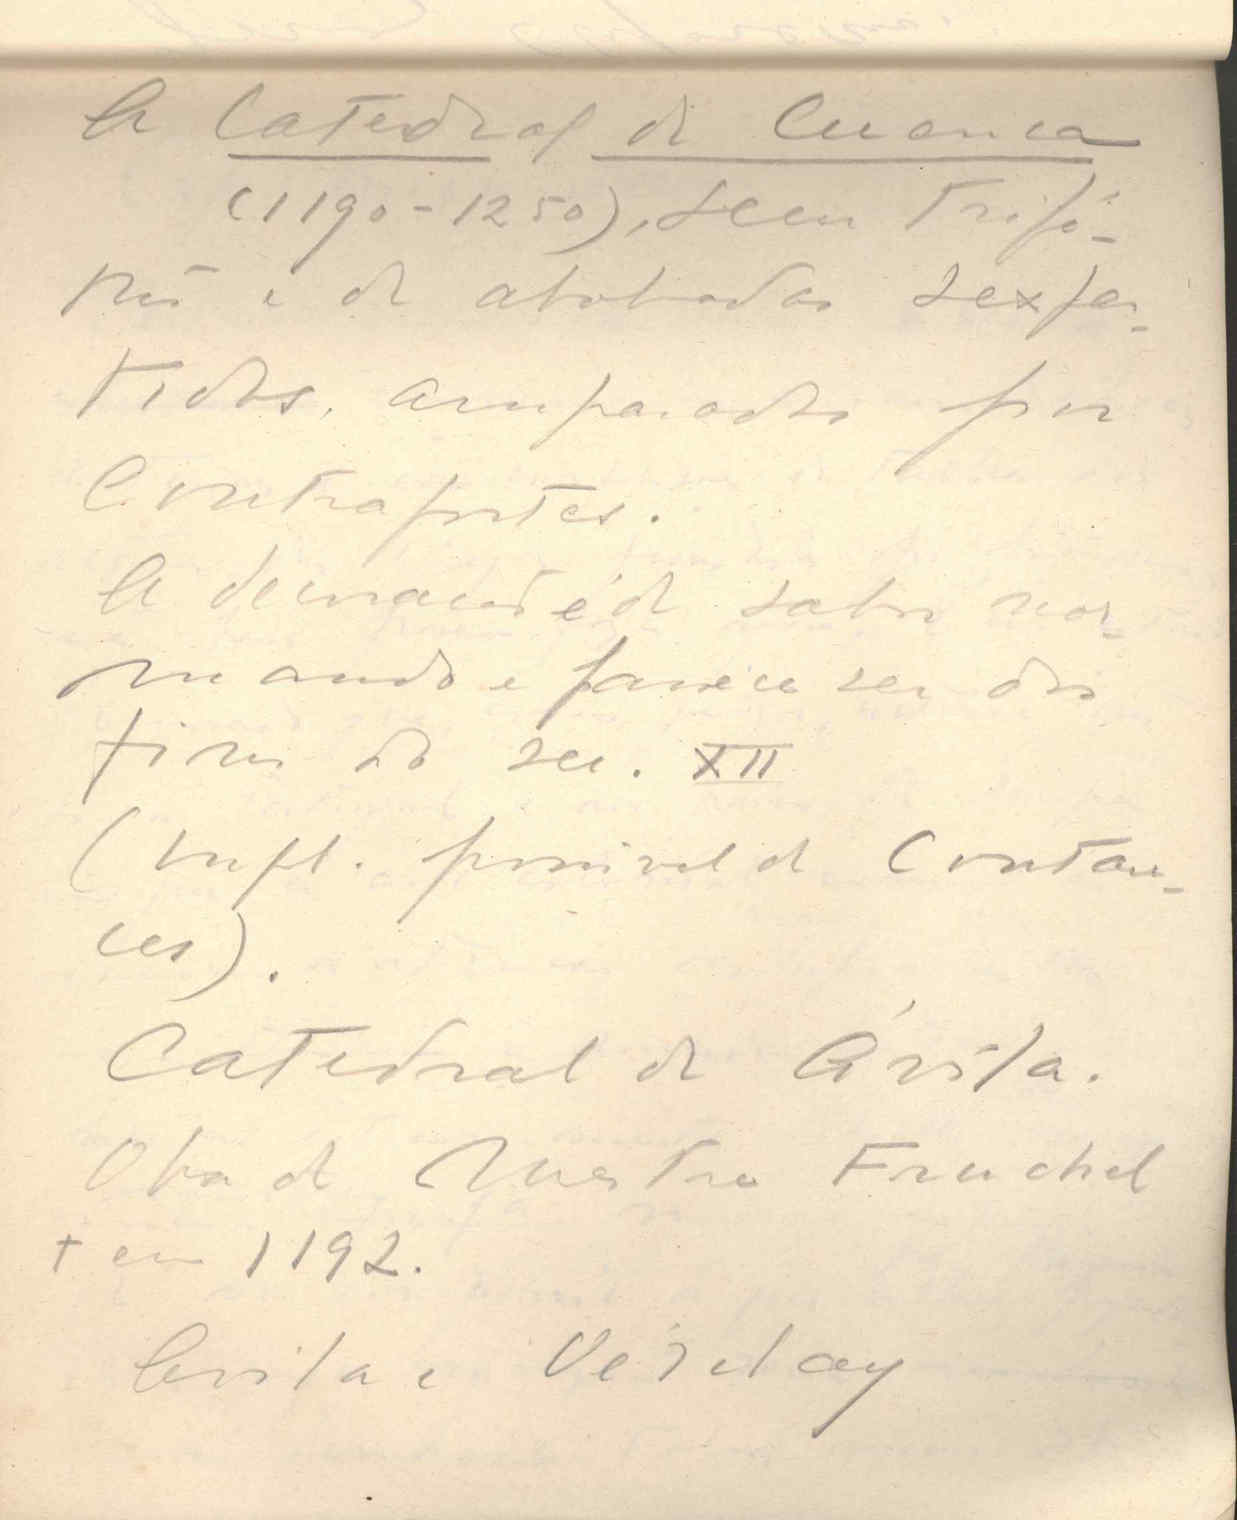 A Catedral de Cuenca
(1190-1250), sem trifó-
rio e de abobadas sexpar-
tidas, amparadas por
Contrafortes.
A decoração é de sabor nor-
mando e parece ser dos
fins do sec. XII
(Infl. possivel de Coutan-
ces).
Catedral de Ávila.
Obra de Mestre Fruchel
† em 1192.
Avila e Vézelay